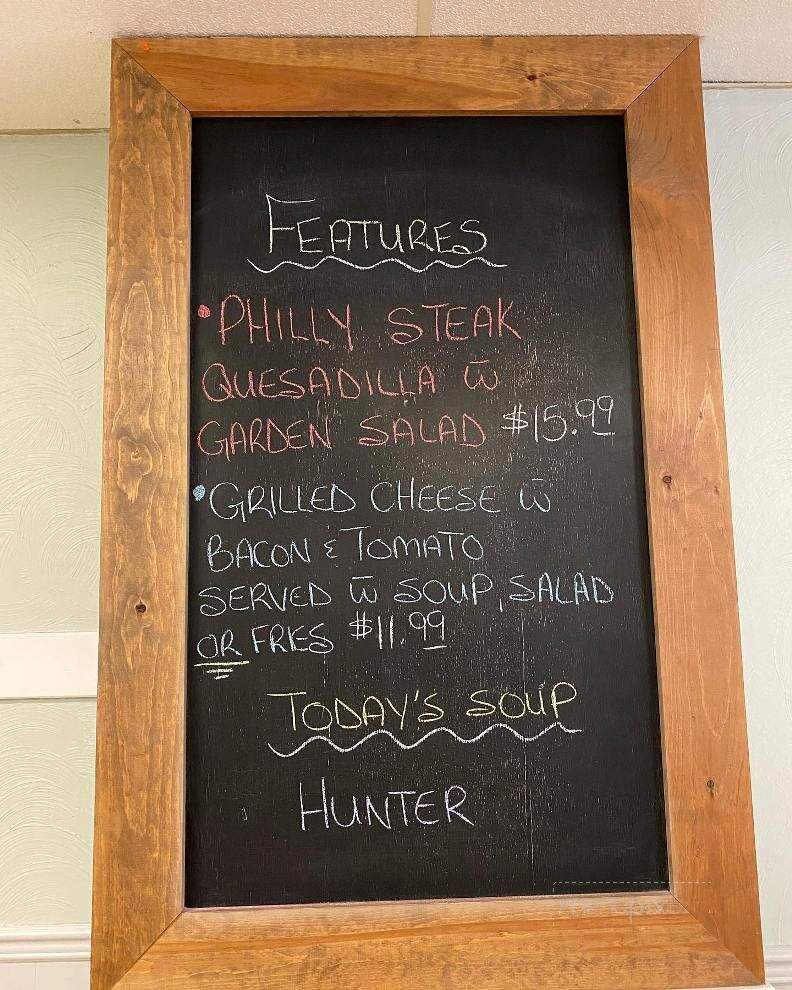 FEATURES
• PHILLY STEAK
QUESADILLA w̄
GARDEN SALAD $15.99
• GRILLED CHEESE w̄
BACON & TOMATO
SERVED w̄ SOUP, SALAD
OR FRIES $11.99
TODAY'S SOUP
HUNTER